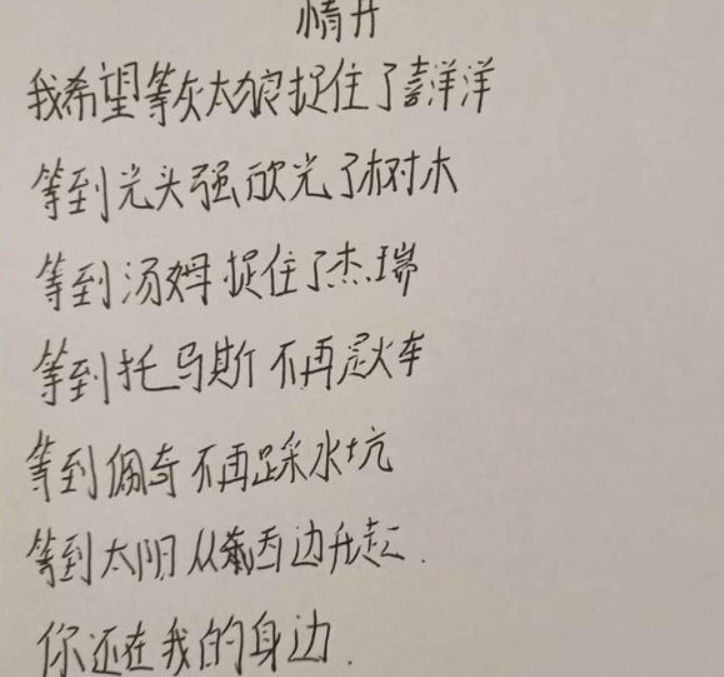 情开
我希望等灰太狼捉住了喜洋洋
等到光头强砍光了树木
等到汤姆捉住了杰瑞
等到托马斯不再是火车
等到佩奇不再踩水坑
等到太阳从西边升起.
你还在我的身边.